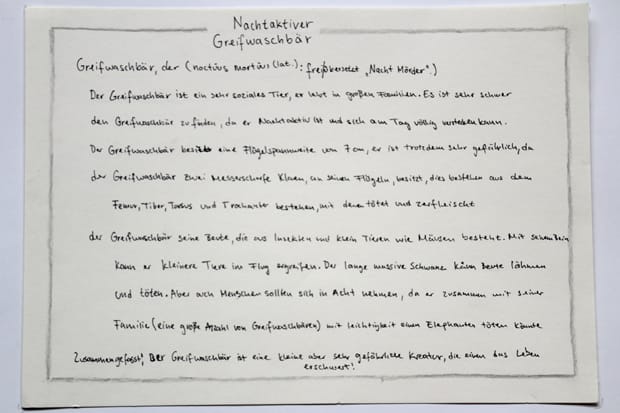 Nachtaktiver
Greifwaschbär
Greifwaschbär, der (noctúus mortúus (lat.): frei übersetzt „Nacht Mörder".)
Der Greifwaschbär ist ein sehr soziales Tier, er lebt in großen Familien. Es ist sehr schwer
den Greifwaschbär zu finden, da er Nachtaktiv ist und sich am Tag völlig verstecken kann.
Der Greifwaschbär besitzt eine Flügelspannweite von 7cm, er ist trotzdem sehr gefährlich, da
der Greifwaschbär zwei Messerscharfe Klauen, an seinen Flügeln, besitzt, dies bestehen aus dem
Femur, Tiber, Torsus und Trochanter bestehen, mit denen tötet und zerfleischt
der Greifwaschbär seine Beute, die aus Insekten und klein Tieren wie Mäusen besteht. Mit seinen Bein
kann er kleinere Tiere im Flug ergreifen. Der lange massive Schwanz kann Beute lähmen
und töten. Aber auch Menschen sollten sich in Acht nehmen, da er zusammen mit seiner
Familie (eine große Anzahl von Greifwaschbären) mit leichtigkeit einen Elephanten töten könnte
Zusammengefasst: Der Greifwaschbär ist eine kleine aber sehr gefährliche Kreatur, die einen das Leben
erschwert!